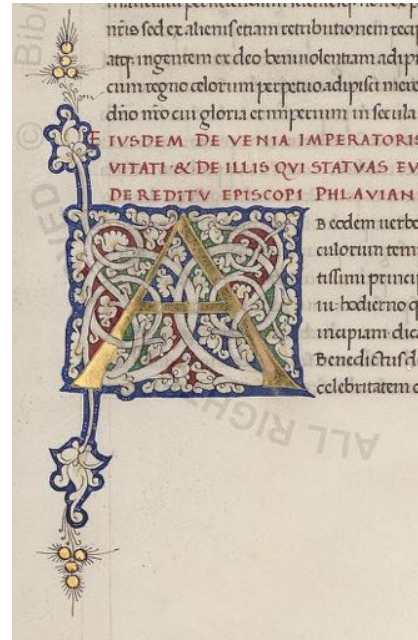 nr̄is sed ex alienis etiam retributionem
atq; ingentem ex deo beniuolentiam adipi
cum regno celorum perpetuo adipisci mere
dño nr̄o cui gloria et imperium in secula
EIVSDEM DE VENIA IMPERATORIS
VITATI & DE ILLIS QVI STATVAS EV
DE REDITV EPISCOPI PHLAVIAN
A
B eodem uerbo
culorum tem
tissimi princip
hodierno q
incipiam dica
Benedictus d
celebritatem
© Bibl
ALL RIGHT